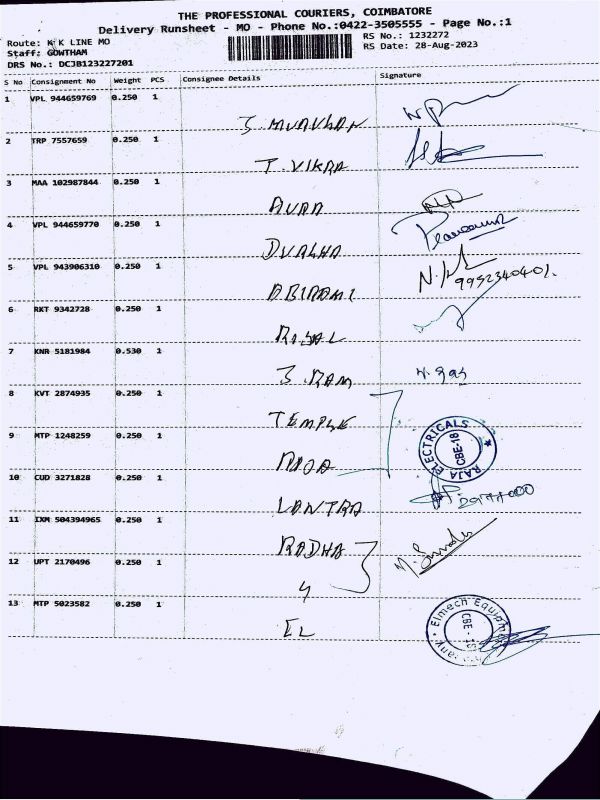 THE PROFESSIONAL COURIERS, COIMBATORE
Delivery Runsheet - MO - Phone No.:0422-3505555 - Page No.:1
Route: N K LINE MO
RS No.: 1232272
Staff: GOWTHAM
RS Date: 28-Aug-2023
DRS No.: DCJB123227201
S No Consignment No Weight PCS Consignee Details Signature
1 VPL 944659769 0.250 1
2 TRP 7557659 0.250 1
T. VIKRA
3 MAA 102987844 0.250 1
4 VPL 944659770 0.250 1
5 VPL 943906310 0.250 1
ABINAMI
6 RKT 9342728 0.250 1
7 KNR 5181984 0.530 1
S. RAM
8 KVT 2874935 0.250 1
TEMPLE
9 MTP 1248259 0.250 1
RAJA ELECTRICALS CBE-18
10 CUD 3271828 0.250 1
11 IXM 504394965 0.250 1
RADHA
12 UPT 2170496 0.250 1
4
13 MTP 5023582 0.250 1
EL
Elmech Equipment